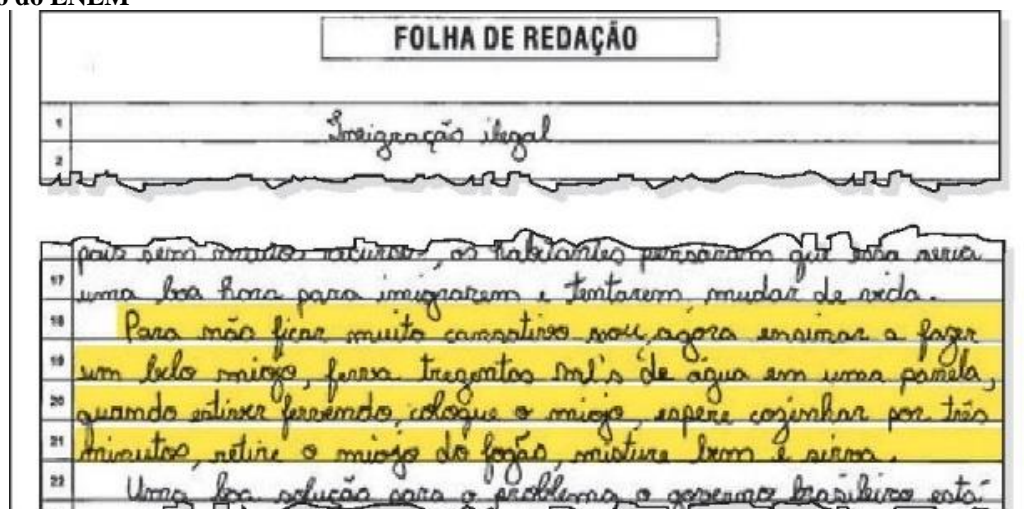 o do ENEM
FOLHA DE REDAÇÃO
1 Imigração ilegal
2
país sem muitos recursos, os habitantes pensaram que essa seria
17 uma boa hora para imigrarem e tentarem mudar de vida.
18 Para não ficar muito cansativo vou, agora ensinar a fazer
19 um belo miojo, ferva trezentos ml's de água em uma panela,
20 quando estiver fervendo, coloque o miojo, espere cozinhar por três
21 minutos, retire o miojo do fogão, misture bem e sirva.
22 Uma boa solução para o problema o governo brasileiro está